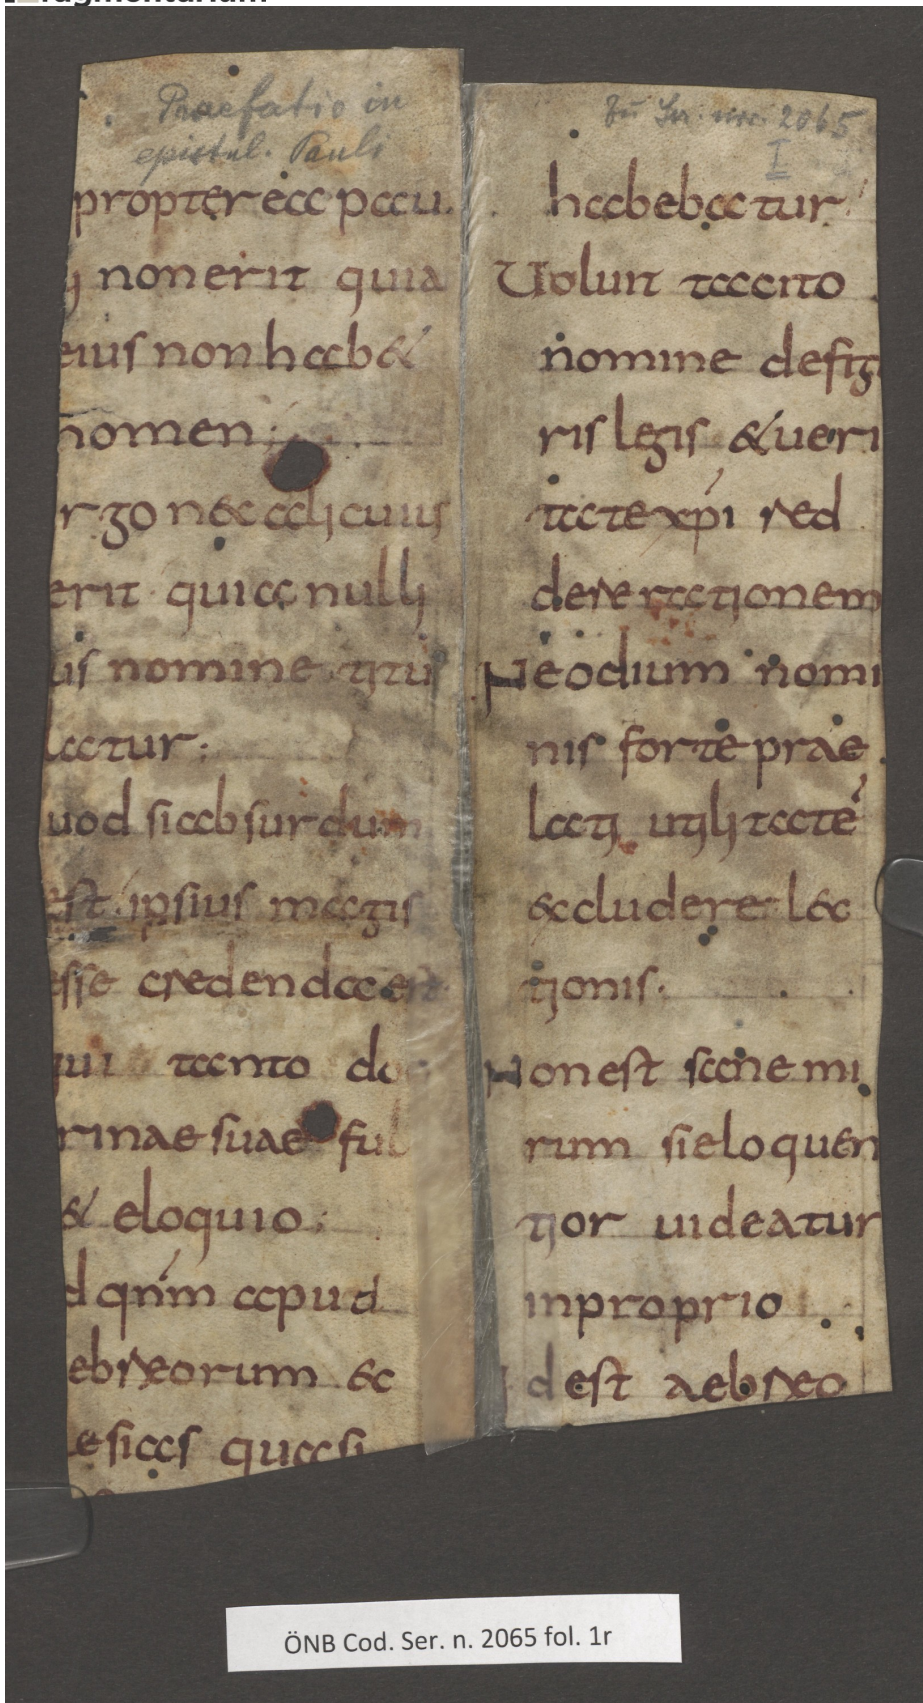 Fragmentarium
Praefatio in
epistul. Pauli
propterea pau
ti nonerit quia
eius non hab&
nomen
rgo nec alicuius
erit quia nulli
us nomine titu
latur:
uod si absurdum
est ipsius magis
esse credenda est
qui tanto doc
rinae suae ful
& eloquio
d qnm apud
ebreorum ec
esias quasi
2065
I
habebatur
Uolun tacito
nomine desig
ris legis & ueri
tate xpi sed
deseruationem
Ne odium nomi
nis forte prae
lati utilitate
excludere lec
tionis.
Non est sane mi
rum si eloquen
tior uideatur
in proprio
dest aebreo
ÖNB Cod. Ser. n. 2065 fol. 1r